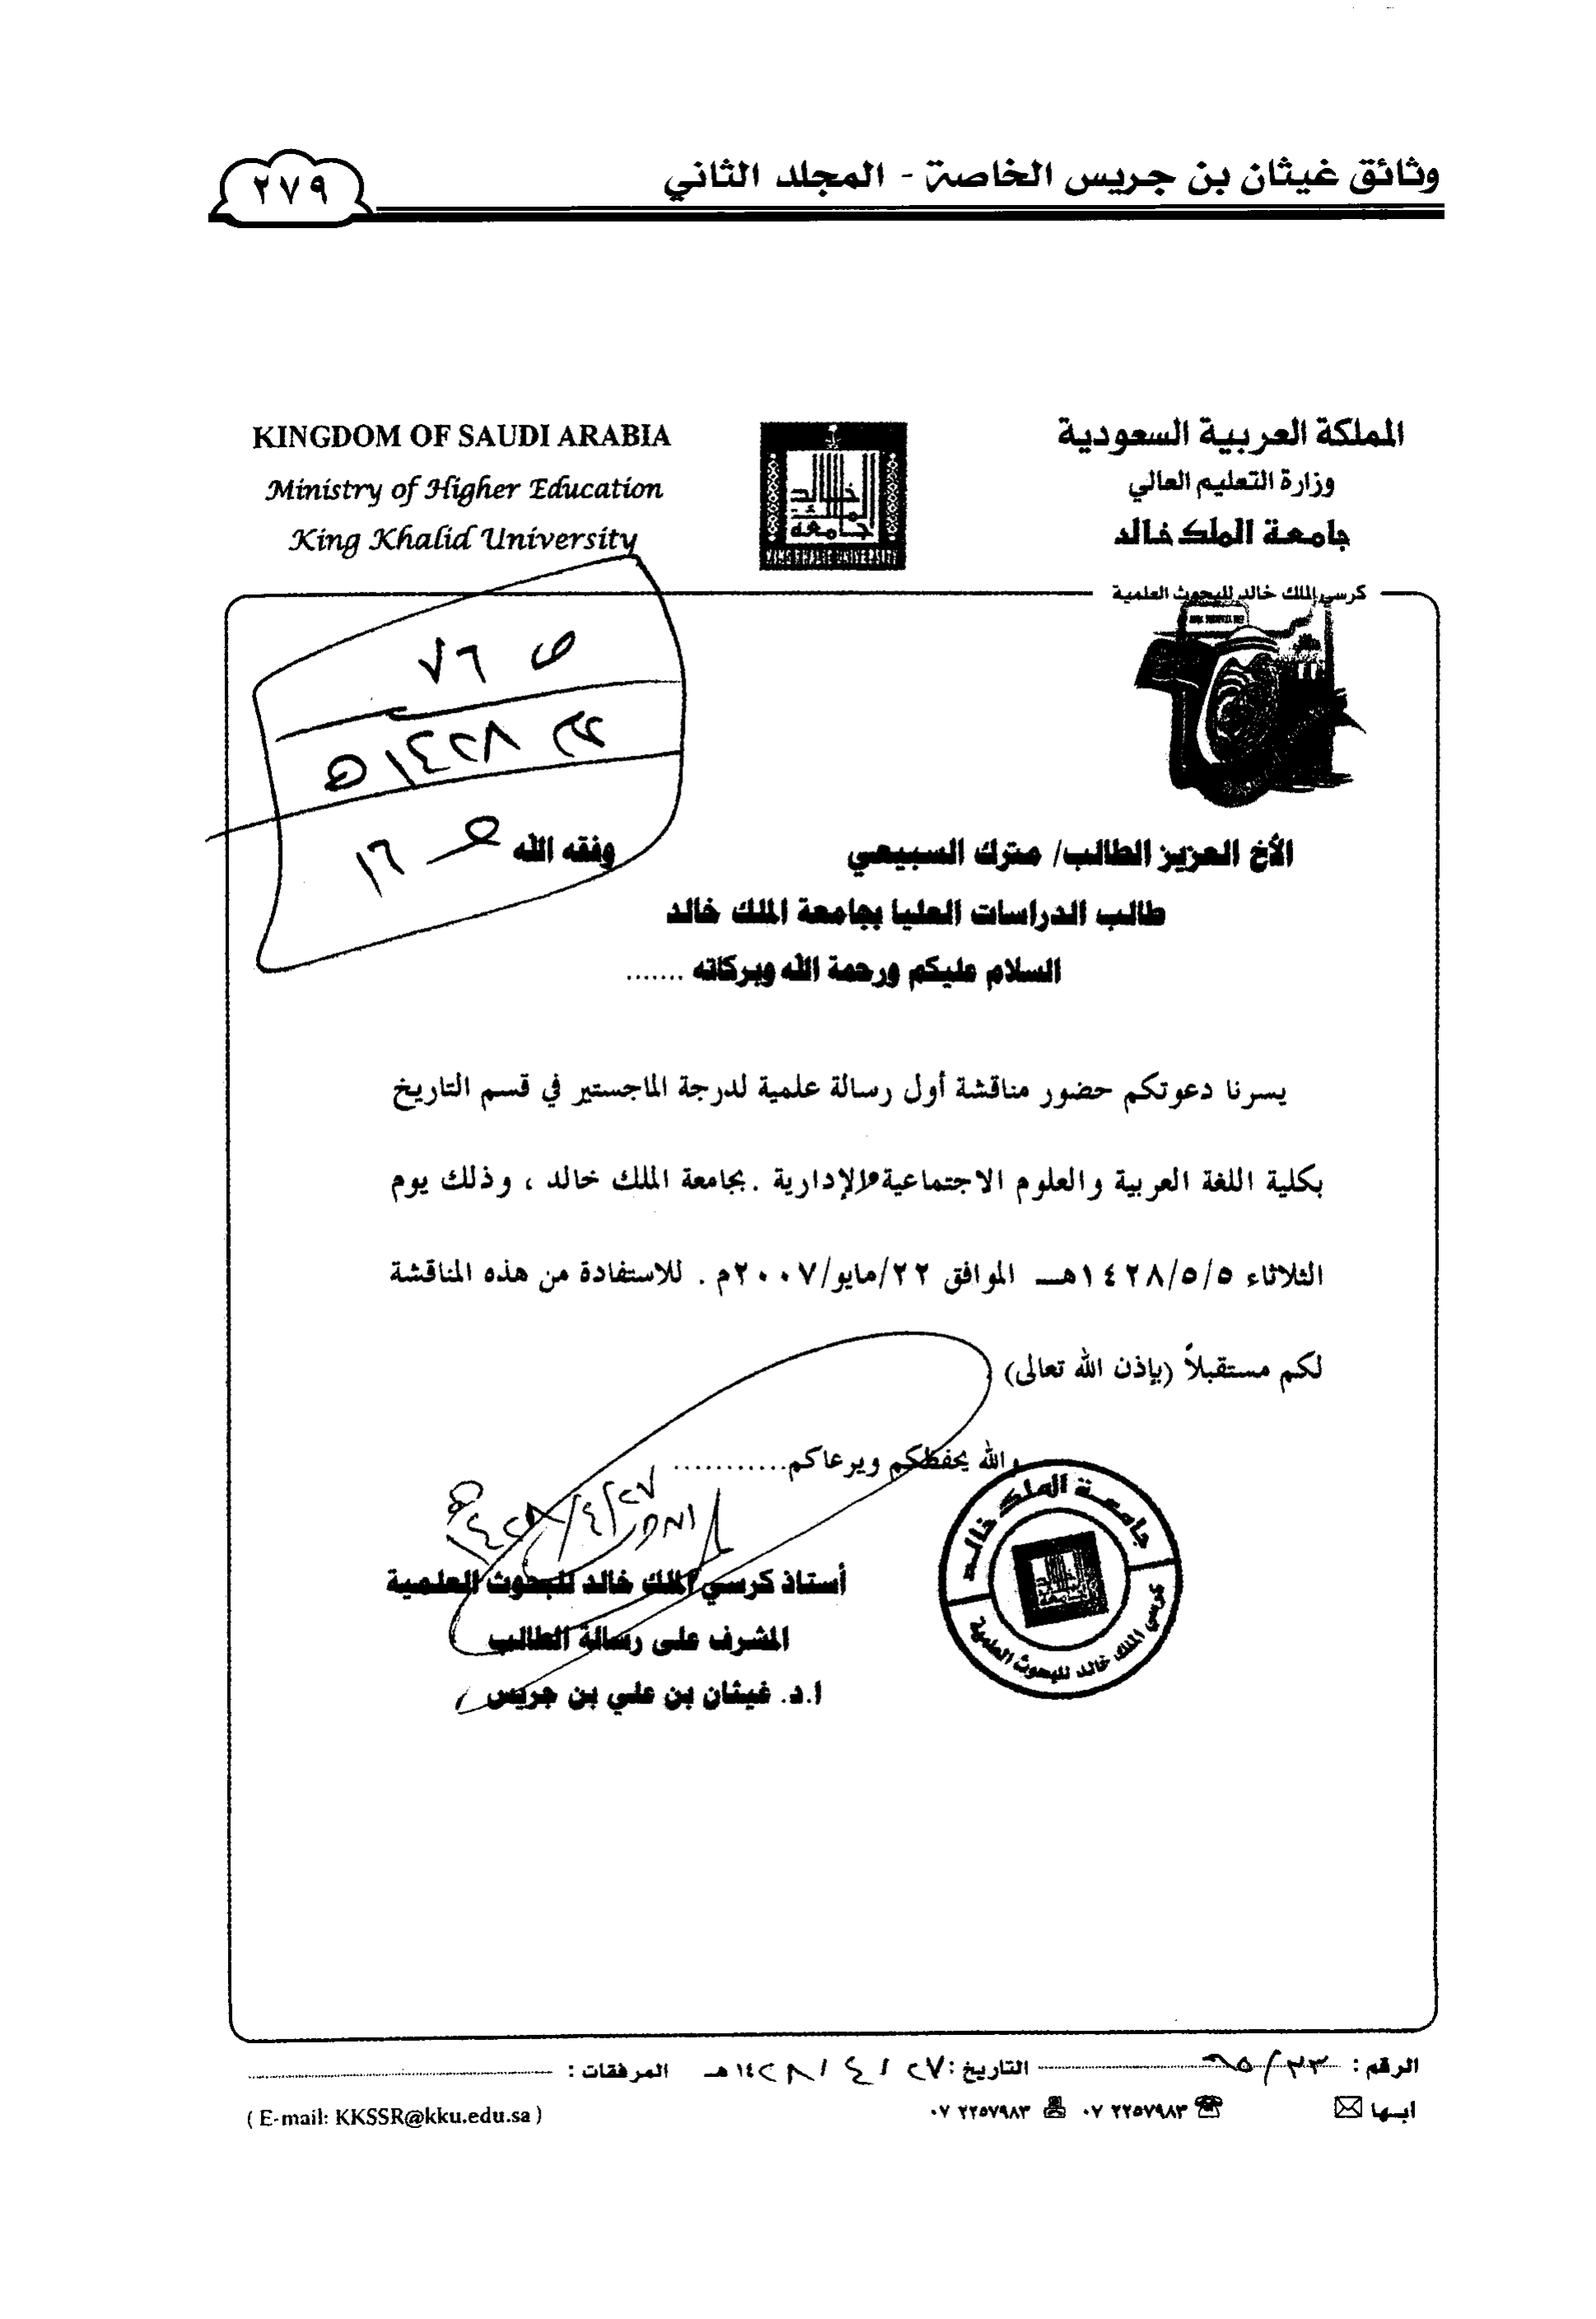 وثائق غيثان بن جريس الخاصة - المجلد الثاني
٢٧٩
المملكة العربية السعودية
وزارة التعليم العالي
جامعة الملك خالد
KINGDOM OF SAUDI ARABIA
Ministry of Higher Education
King Khalid University
جامعة الملك خالد
KING KHALID UNIVERSITY
كرسي الملك خالد للبحوث العلمية
ص ٧٦
١٤٢٨هـ
١٦
الأخ العزيز الطالب/ مترك السبيعي وفقه الله
طالب الدراسات العليا بجامعة الملك خالد
السلام عليكم ورحمة الله وبركاته .......
يسرنا دعوتكم حضور مناقشة أول رسالة علمية لدرجة الماجستير في قسم التاريخ
بكلية اللغة العربية والعلوم الاجتماعية والإدارية .بجامعة الملك خالد ، وذلك يوم
الثلاثاء ١٤٢٨/٥/٥هـ الموافق ٢٢/مايو/٢٠٠٧م . للاستفادة من هذه المناقشة
لكم مستقبلاً (بإذن الله تعالى)
والله يحفظكم ويرعاكم...........
١٤٢٨/٤/٢٧هـ
أستاذ كرسي الملك خالد للبحوث العلمية
المشرف على رسالة الطالب
ا.د. غيثان بن علي بن جريس
جامعة الملك خالد
كرسي الملك خالد للبحوث العلمية
الرقم : التاريخ : ٢٧ / ٤ / ١٤٢٨ هـ المرفقات :
ابها ٠٧ ٢٢٥٧٩٨٣ ٠٧ ٢٢٥٧٩٨٣
( E-mail: KKSSR@kku.edu.sa )